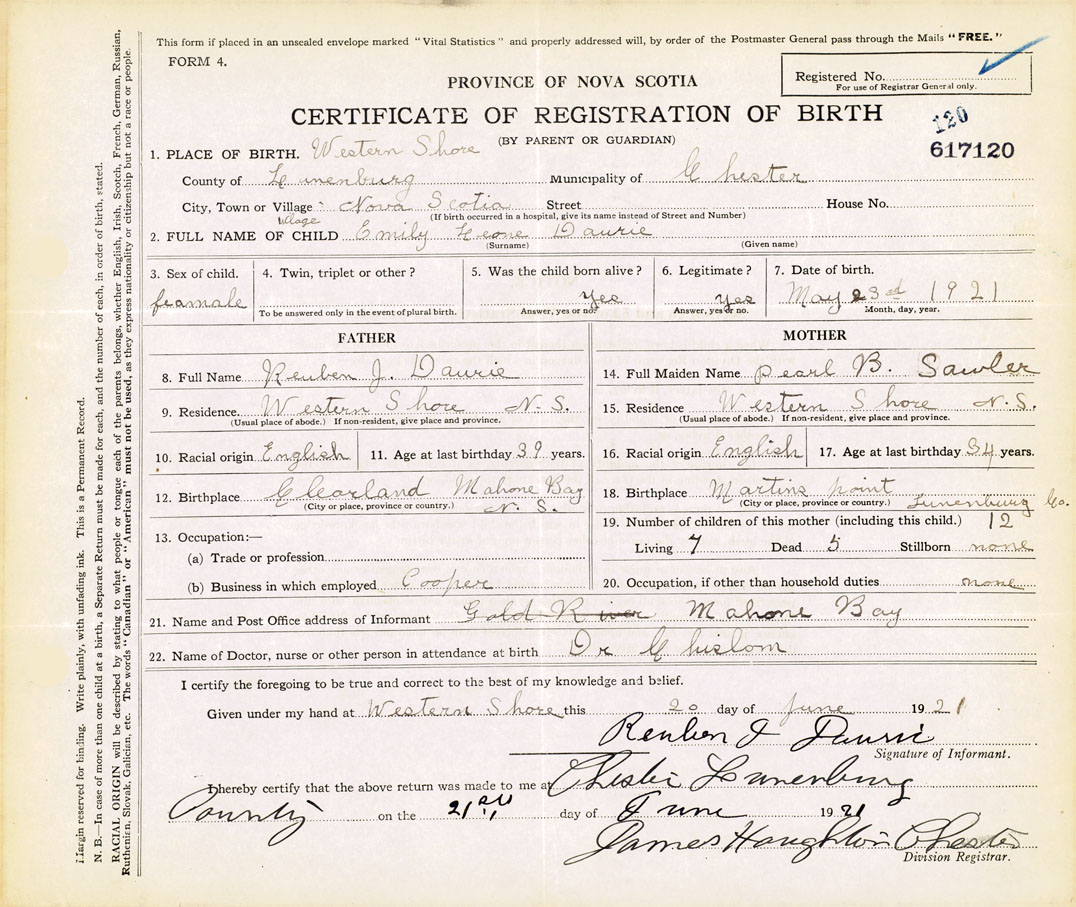 This form if placed in an unsealed envelope marked "Vital Statistics" and properly addressed will, by order of the Postmaster General pass through the Mails "FREE."
FORM 4.
Registered No.
For use of Registrar General only.
PROVINCE OF NOVA SCOTIA
CERTIFICATE OF REGISTRATION OF BIRTH
120
(BY PARENT OR GUARDIAN)
617120
1. PLACE OF BIRTH. Western Shore
County of Lunenburg Municipality of Chester
City, Town or Village Nova Scotia Street House No.
village (If birth occurred in a hospital, give its name instead of Street and Number)
2. FULL NAME OF CHILD Emily Leone Daurie
(Surname) (Given name)
3. Sex of child. 4. Twin, triplet or other? 5. Was the child born alive? 6. Legitimate? 7. Date of birth.
feamale Yes Yes May 23rd 1921
To be answered only in the event of plural birth. Answer, yes or no. Answer, yes or no. Month, day, year.
FATHER
8. Full Name Reuben J. Daurie
9. Residence. Western Shore N. S.
(Usual place of abode.) If non-resident, give place and province.
10. Racial origin English 11. Age at last birthday 39 years.
12. Birthplace Clearland Mahone Bay
(City or place, province or country.) N. S.
13. Occupation:—
(a) Trade or profession
(b) Business in which employed Cooper
MOTHER
14. Full Maiden Name pearl B. Sawler
15. Residence Western Shore N. S.
(Usual place of abode.) If non-resident, give place and province.
16. Racial origin English 17. Age at last birthday 34 years.
18. Birthplace Martins point
(City or place, province or country.) Lunenburg Co.
19. Number of children of this mother (including this child.) 12
Living 7 Dead 5 Stillborn none
20. Occupation, if other than household duties none
21. Name and Post Office address of Informant Gold River Mahone Bay
22. Name of Doctor, nurse or other person in attendance at birth Dr Chislom
I certify the foregoing to be true and correct to the best of my knowledge and belief.
Given under my hand at Western Shore this 20 day of June 1921
Reuben J Daurie
Signature of Informant.
I hereby certify that the above return was made to me at Chester Lunenburg
County on the 21st day of June 1921
James Houghton Chester
Division Registrar.
Margin reserved for binding. Write plainly, with unfading ink. This is a Permanent Record.
N. B.—In case of more than one child at a birth, a Separate Return must be made for each, and the number of each, in order of birth, stated.
RACIAL ORIGIN will be described by stating to what people or tongue each of the parents belongs, whether English, Irish, Scotch, French, German, Russian,
Ruthenian, Slovak, Galician, etc. The words "Canadian" or "American" must not be used, as they express nationality or citizenship but not a race or people.